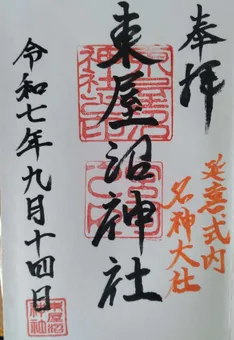 奉拝
延喜式内
名神大社
東屋沼神社
令和七年九月十四日
東屋沼
神社